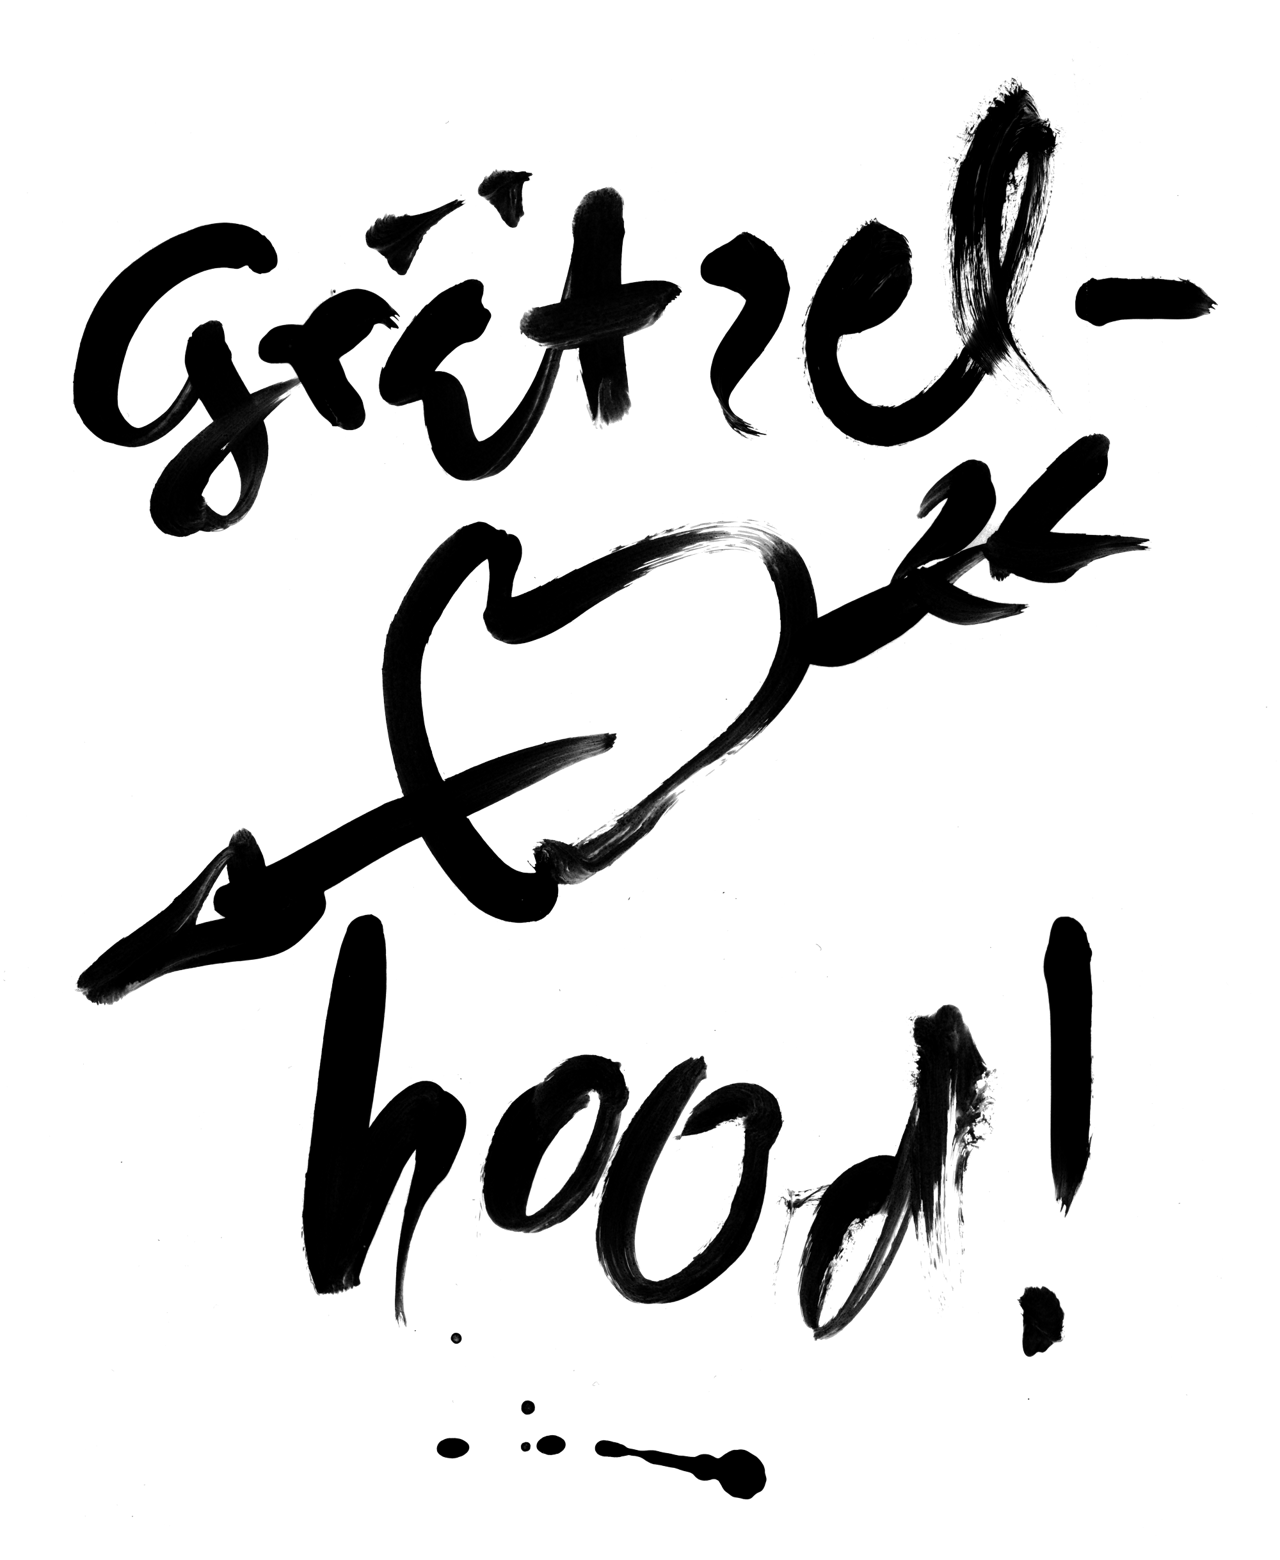 grätzel-
hood!